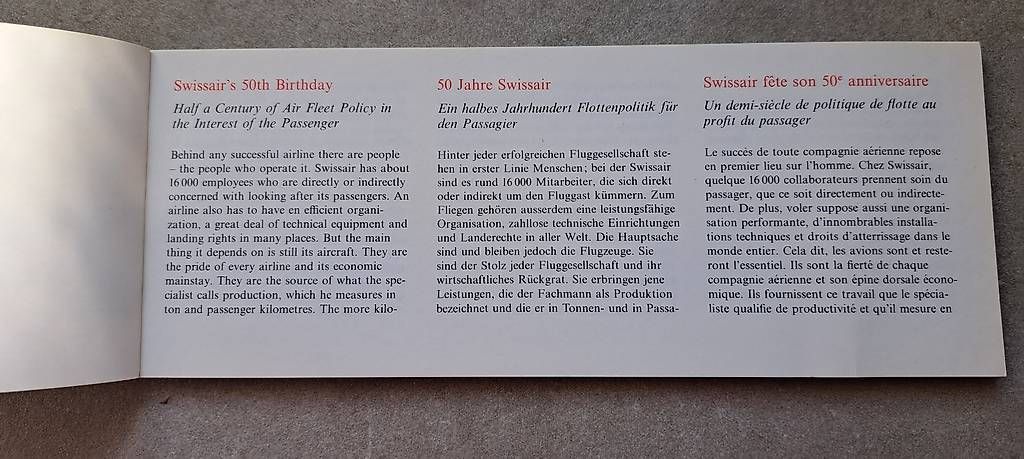 Swissair's 50th Birthday
Half a Century of Air Fleet Policy in
the Interest of the Passenger
Behind any successful airline there are people
– the people who operate it. Swissair has about
16 000 employees who are directly or indirectly
concerned with looking after its passengers. An
airline also has to have en efficient organi-
zation, a great deal of technical equipment and
landing rights in many places. But the main
thing it depends on is still its aircraft. They are
the pride of every airline and its economic
mainstay. They are the source of what the spe-
cialist calls production, which he measures in
ton and passenger kilometres. The more kilo-
50 Jahre Swissair
Ein halbes Jahrhundert Flottenpolitik für
den Passagier
Hinter jeder erfolgreichen Fluggesellschaft ste-
hen in erster Linie Menschen; bei der Swissair
sind es rund 16 000 Mitarbeiter, die sich direkt
oder indirekt um den Fluggast kümmern. Zum
Fliegen gehören ausserdem eine leistungsfähige
Organisation, zahllose technische Einrichtungen
und Landerechte in aller Welt. Die Hauptsache
sind und bleiben jedoch die Flugzeuge. Sie
sind der Stolz jeder Fluggesellschaft und ihr
wirtschaftliches Rückgrat. Sie erbringen jene
Leistungen, die der Fachmann als Produktion
bezeichnet und die er in Tonnen- und in Passa-
Swissair fête son 50e anniversaire
Un demi-siècle de politique de flotte au
profit du passager
Le succès de toute compagnie aérienne repose
en premier lieu sur l'homme. Chez Swissair,
quelque 16 000 collaborateurs prennent soin du
passager, que ce soit directement ou indirecte-
ment. De plus, voler suppose aussi une organi-
sation performante, d'innombrables installa-
tions techniques et droits d'atterrissage dans le
monde entier. Cela dit, les avions sont et reste-
ront l'essentiel. Ils sont la fierté de chaque
compagnie aérienne et son épine dorsale écono-
mique. Ils fournissent ce travail que le spécia-
liste qualifie de productivité et qu'il mesure en